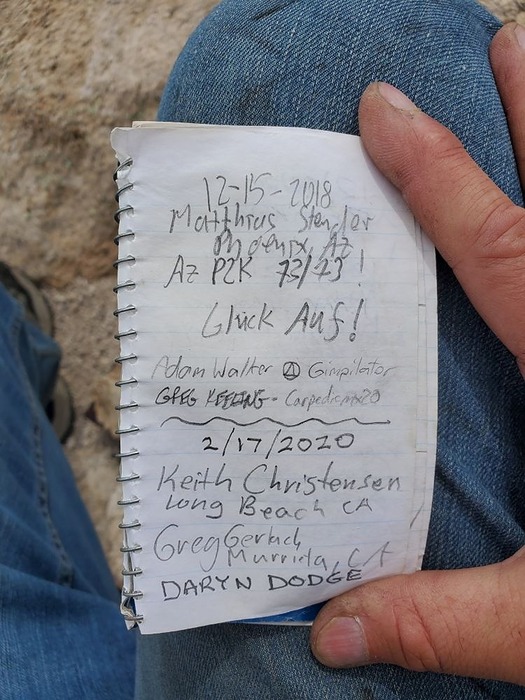 12-15-2018
Matthias Stender
Phoenix, Az
Az P2K 73/73!
Glück Auf!
Adam Walter Gimpilator
GREG
2/17/2020
Keith Christensen
Long Beach CA
Greg Gerlach
Murrieta, CA
DARYN DODGE